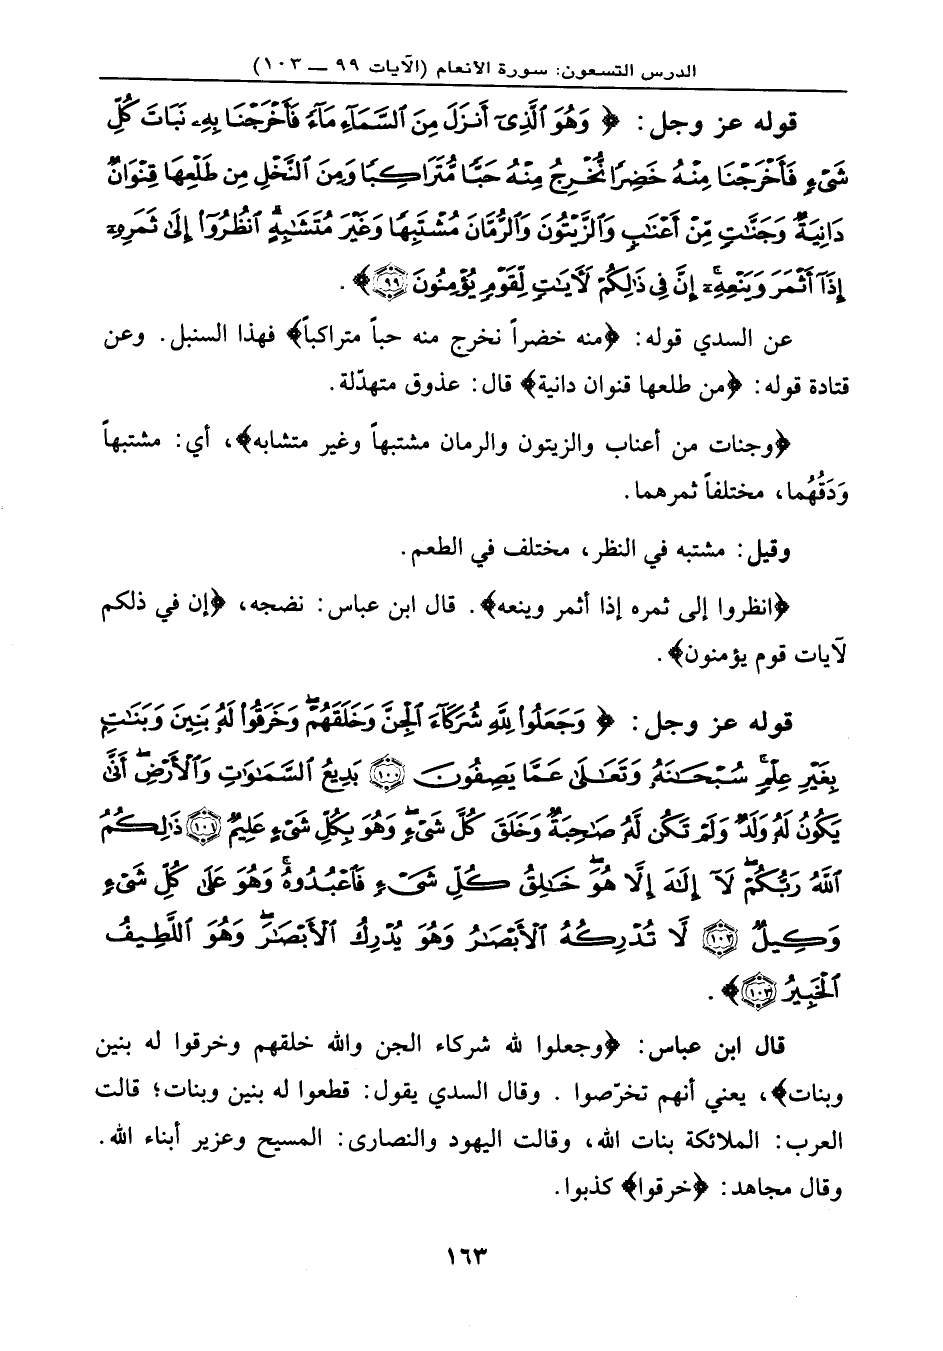 الدرس التسعون: سورة الانعام (الآيات ٩٩ — ١٠٣)
قوله عز وجل: ﴿ وَهُوَ ٱلَّذِىٓ أَنزَلَ مِنَ ٱلسَّمَآءِ مَآءً فَأَخْرَجْنَا بِهِۦ نَبَاتَ كُلِّ
شَىْءٍ فَأَخْرَجْنَا مِنْهُ خَضِرًا نُّخْرِجُ مِنْهُ حَبًّا مُّتَرَاكِبًا وَمِنَ ٱلنَّخْلِ مِن طَلْعِهَا قِنْوَانٌ
دَانِيَةٌ وَجَنَّٰتٍ مِّنْ أَعْنَابٍ وَٱلزَّيْتُونَ وَٱلرُّمَّانَ مُشْتَبِهًا وَغَيْرَ مُتَشَٰبِهٍ ۗ ٱنظُرُوٓا۟ إِلَىٰ ثَمَرِهِۦٓ
إِذَآ أَثْمَرَ وَيَنْعِهِۦٓ ۚ إِنَّ فِى ذَٰلِكُمْ لَءَايَٰتٍ لِّقَوْمٍ يُؤْمِنُونَ ﴿٩٩﴾ ﴾ .
عن السدي قوله: ﴿منه خضراً نخرج منه حباً متراكباً﴾ فهذا السنبل. وعن
قتادة قوله: ﴿من طلعها قنوان دانية﴾ قال: عذوق متهدّلة.
﴿وجنات من أعناب والزيتون والرمان مشتبهاً وغير متشابه﴾، أي: مشتبهاً
وَدَقُهُما، مختلفاً ثمرهما.
وقيل: مشتبه في النظر، مختلف في الطعم.
﴿انظروا إلى ثمره إذا أثمر وينعه﴾. قال ابن عباس: نضجه، ﴿إن في ذلكم
لآيات قوم يؤمنون﴾.
قوله عز وجل: ﴿ وَجَعَلُوا۟ لِلَّهِ شُرَكَآءَ ٱلْجِنَّ وَخَلَقَهُمْ ۖ وَخَرَقُوا۟ لَهُۥ بَنِينَ وَبَنَٰتٍۭ
بِغَيْرِ عِلْمٍ ۚ سُبْحَٰنَهُۥ وَتَعَٰلَىٰ عَمَّا يَصِفُونَ ﴿١٠٠﴾ بَدِيعُ ٱلسَّمَٰوَٰتِ وَٱلْأَرْضِ ۖ أَنَّىٰ
يَكُونُ لَهُۥ وَلَدٌ وَلَمْ تَكُن لَّهُۥ صَٰحِبَةٌ ۖ وَخَلَقَ كُلَّ شَىْءٍ ۖ وَهُوَ بِكُلِّ شَىْءٍ عَلِيمٌ ﴿١٠١﴾ ذَٰلِكُمُ
ٱللَّهُ رَبُّكُمْ ۖ لَآ إِلَٰهَ إِلَّا هُوَ ۖ خَٰلِقُ كُلِّ شَىْءٍ فَٱعْبُدُوهُ ۚ وَهُوَ عَلَىٰ كُلِّ شَىْءٍ
وَكِيلٌ ﴿١٠٢﴾ لَّا تُدْرِكُهُ ٱلْأَبْصَٰرُ وَهُوَ يُدْرِكُ ٱلْأَبْصَٰرَ ۖ وَهُوَ ٱللَّطِيفُ
ٱلْخَبِيرُ ﴿١٠٣﴾ ﴾ .
قال ابن عباس: ﴿وجعلوا لله شركاء الجن والله خلقهم وخرقوا له بنين
وبنات﴾، يعني أنهم تخرّصوا . وقال السدي يقول: قطعوا له بنين وبنات؛ قالت
العرب: الملائكة بنات الله، وقالت اليهود والنصارى: المسيح وعزير أبناء الله.
وقال مجاهد: ﴿خرقوا﴾ كذبوا.
١٦٣